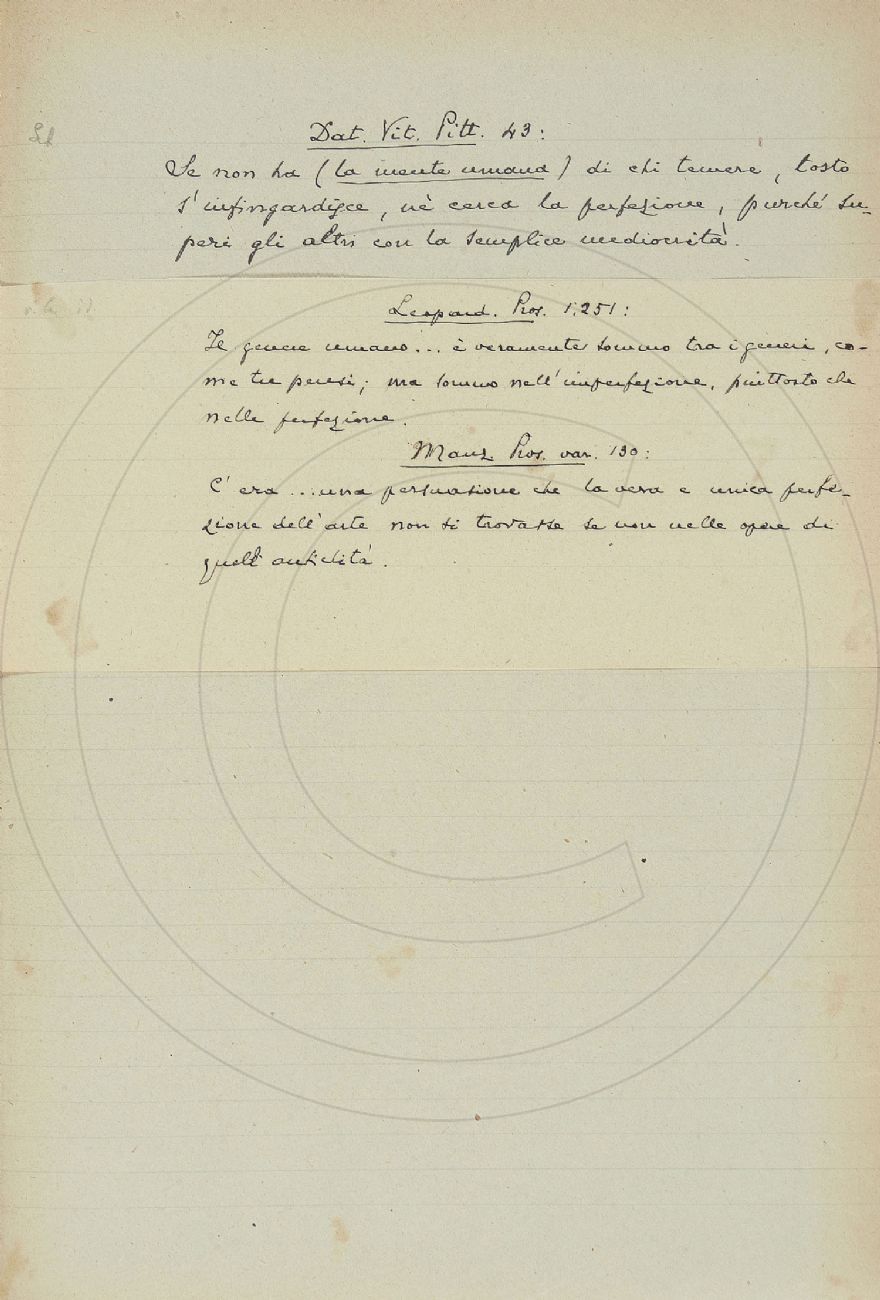 Dat. Vit. Pitt. 43:
Se non ha (la mente umana) di chi temere, tosto
s'infingardisce, nè cerca la perfezione, purché su-
peri gli altri con la semplice mediocrità.
Leopard. Pros. 1,251:
Il genere umano... è veramente sommo tra i generi, co-
me tu pensi; ma sommo nell'imperfezione, piuttosto che
nelle perfezione.
Manz. Pros. var. 130:
C'era ...una persuasione che la vera e unica perfe-
zione dell'arte non si trovasse se non nelle opere di
quell'antichità.